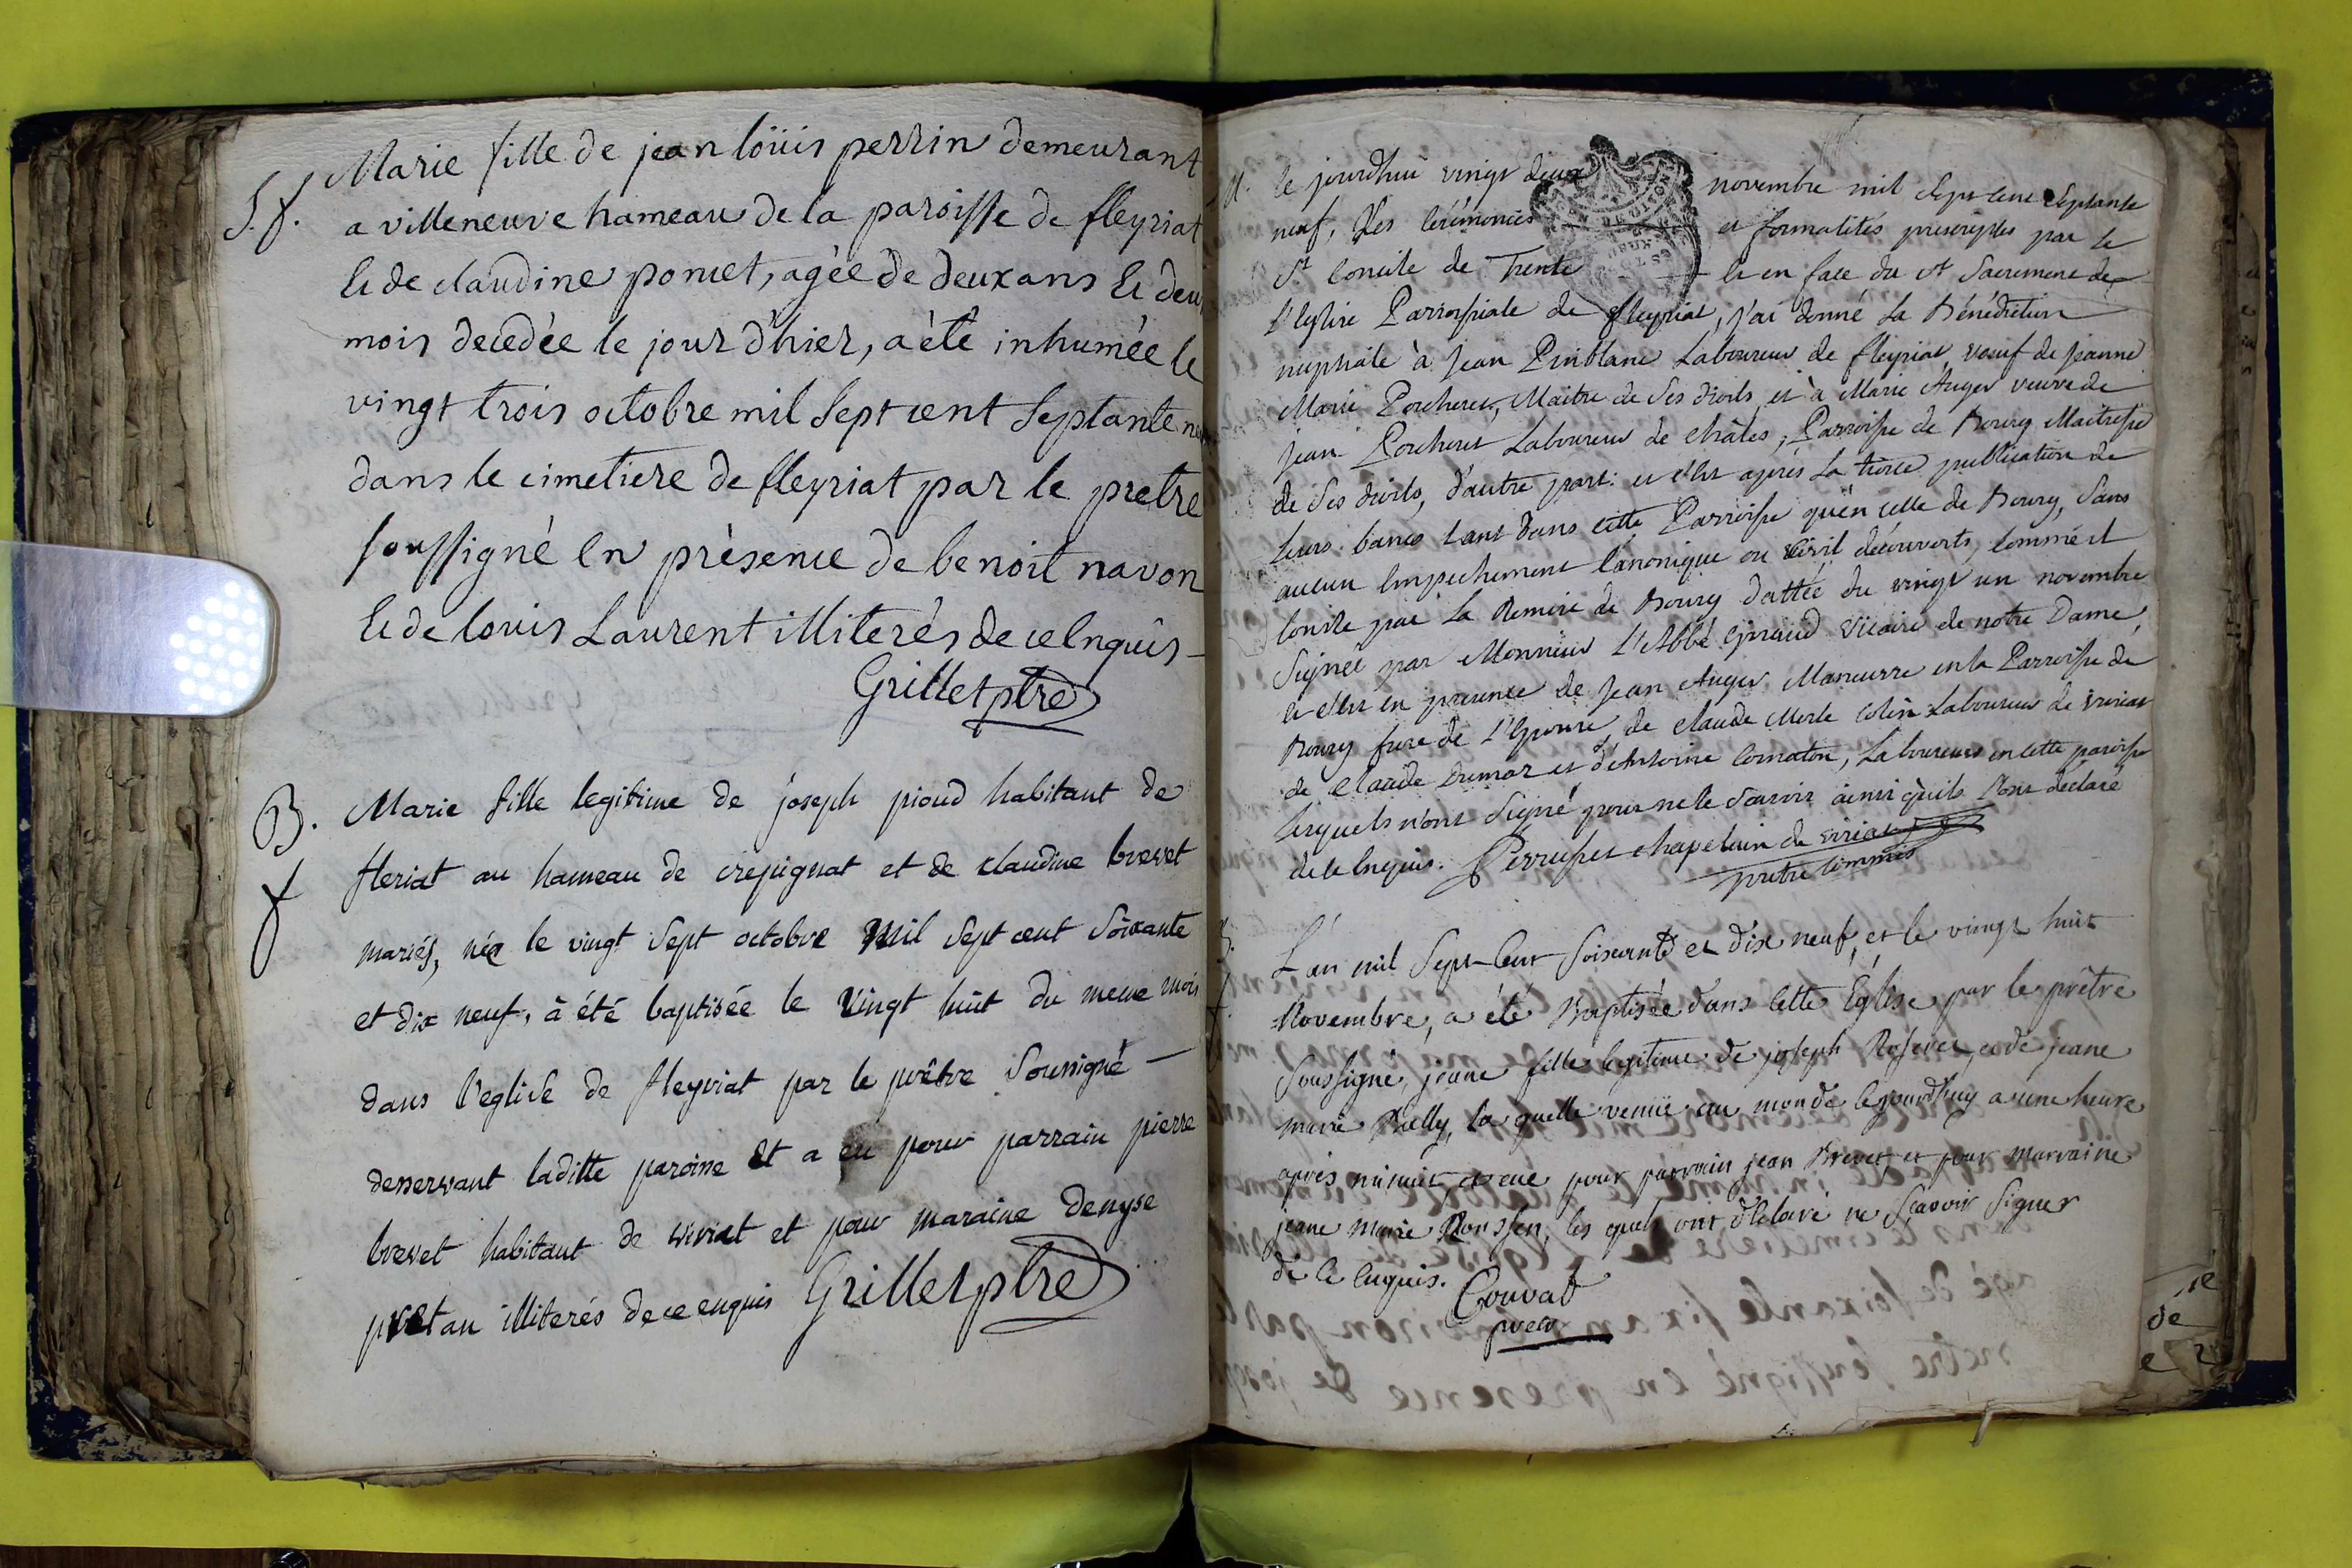 S. f.
Marie fille de jean loüis perrin demeurant
a villeneuve hameau de la paroisse de fleyriat
Et de claudine ponset, agèe de deux ans Et deux
mois decedèe le jour d'hier, a èté inhumèe le
vingt trois octobre mil Sept cent Septante
dans le cimetiere de fleyriat par le pretre
soussigné En prèsence de benoit navon
Et de louis Laurent illiterés de ce Enquis
Grillet ptre
B.
f
Marie fille legitime de joseph pioud habitant de
fleriat au hameau de crepignat et de claudine brevet
mariés, née le vingt sept octobre mil sept cent soixante
et dix neuf, à été baptisée le vingt huit du meme mois
dans l'eglise de fleyriat par le prêtre soussigné
desservant laditte paroisse et a eu pour parrain pierre
brevet habitant de viriat et pour maraine denyse
pvetan illiterés de ce enquis Grillet ptre
M.
le jourd'hui vingt deux novembre mil Sept Cent Septante
neuf, Les Cérémonies et formalités prescriptes par le
St Concile de Trente et en face du St Sacrement de
l'Eglise Parroissiale de fleyriat, j'ai donné La Bénédiction
nuptiale à Jean Pinblanc Laboureur de fleyriat, veuf de Jeanne
Marie Porcheret, Maitre de ses droits et à Marie Auger veuve de
Jean Porcheret Laboureur de Châles, Parroisse de Bourg Maitresse
de Ses droits, d'autre part: et c'est après La tierce publication de
leurs bancs tant dans cette Parroisse qu'en celle de Bourg, Sans
aucun Empechement Canonique ou Civil découverts, Comme il
Conste par La Remise de Bourg dattée du vingt un novembre
Signée par Monsieur L'Abbé Vicaire de notre Dame,
et c'est en presence de Jean Auger Manœuvre en la Parroisse de
Bourg frere de L'Epouse, de claude Merle Colin Laboureur de Viriat
de Claude Dumar et d'Antoine Comaton, Laboureurs en cette paroisse
lesquels n'ont Signé pour ne le Savoir ainsi qu'ils L'ont déclaré
de ce Enquis. Perruset chapelain de viriat
prêtre Commis
L'an mil Sept-Cent Soixante et dix neuf, et le vingt huit
Novembre, a été Baptisée dans Cette Eglise par le prêtre
Soussigné, jeane fille legitime de joseph et de jeane
marie la quelle venüe au monde le jourd'huy a une heure
après minuit, a eue pour parrain jean Brevet et pour marraine
jeane marie Roussen, les quels ont déclaré ne Sçavoir Signer
de Ce Enquis. Couvat